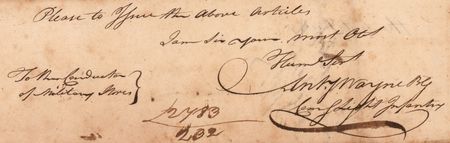 Please to Issue the Above Articles
I am Sir your most Obt
Humb Sert
Anty Wayne BG
Comg Light Infantry
To the Conductor
of Military Stores
2783
232